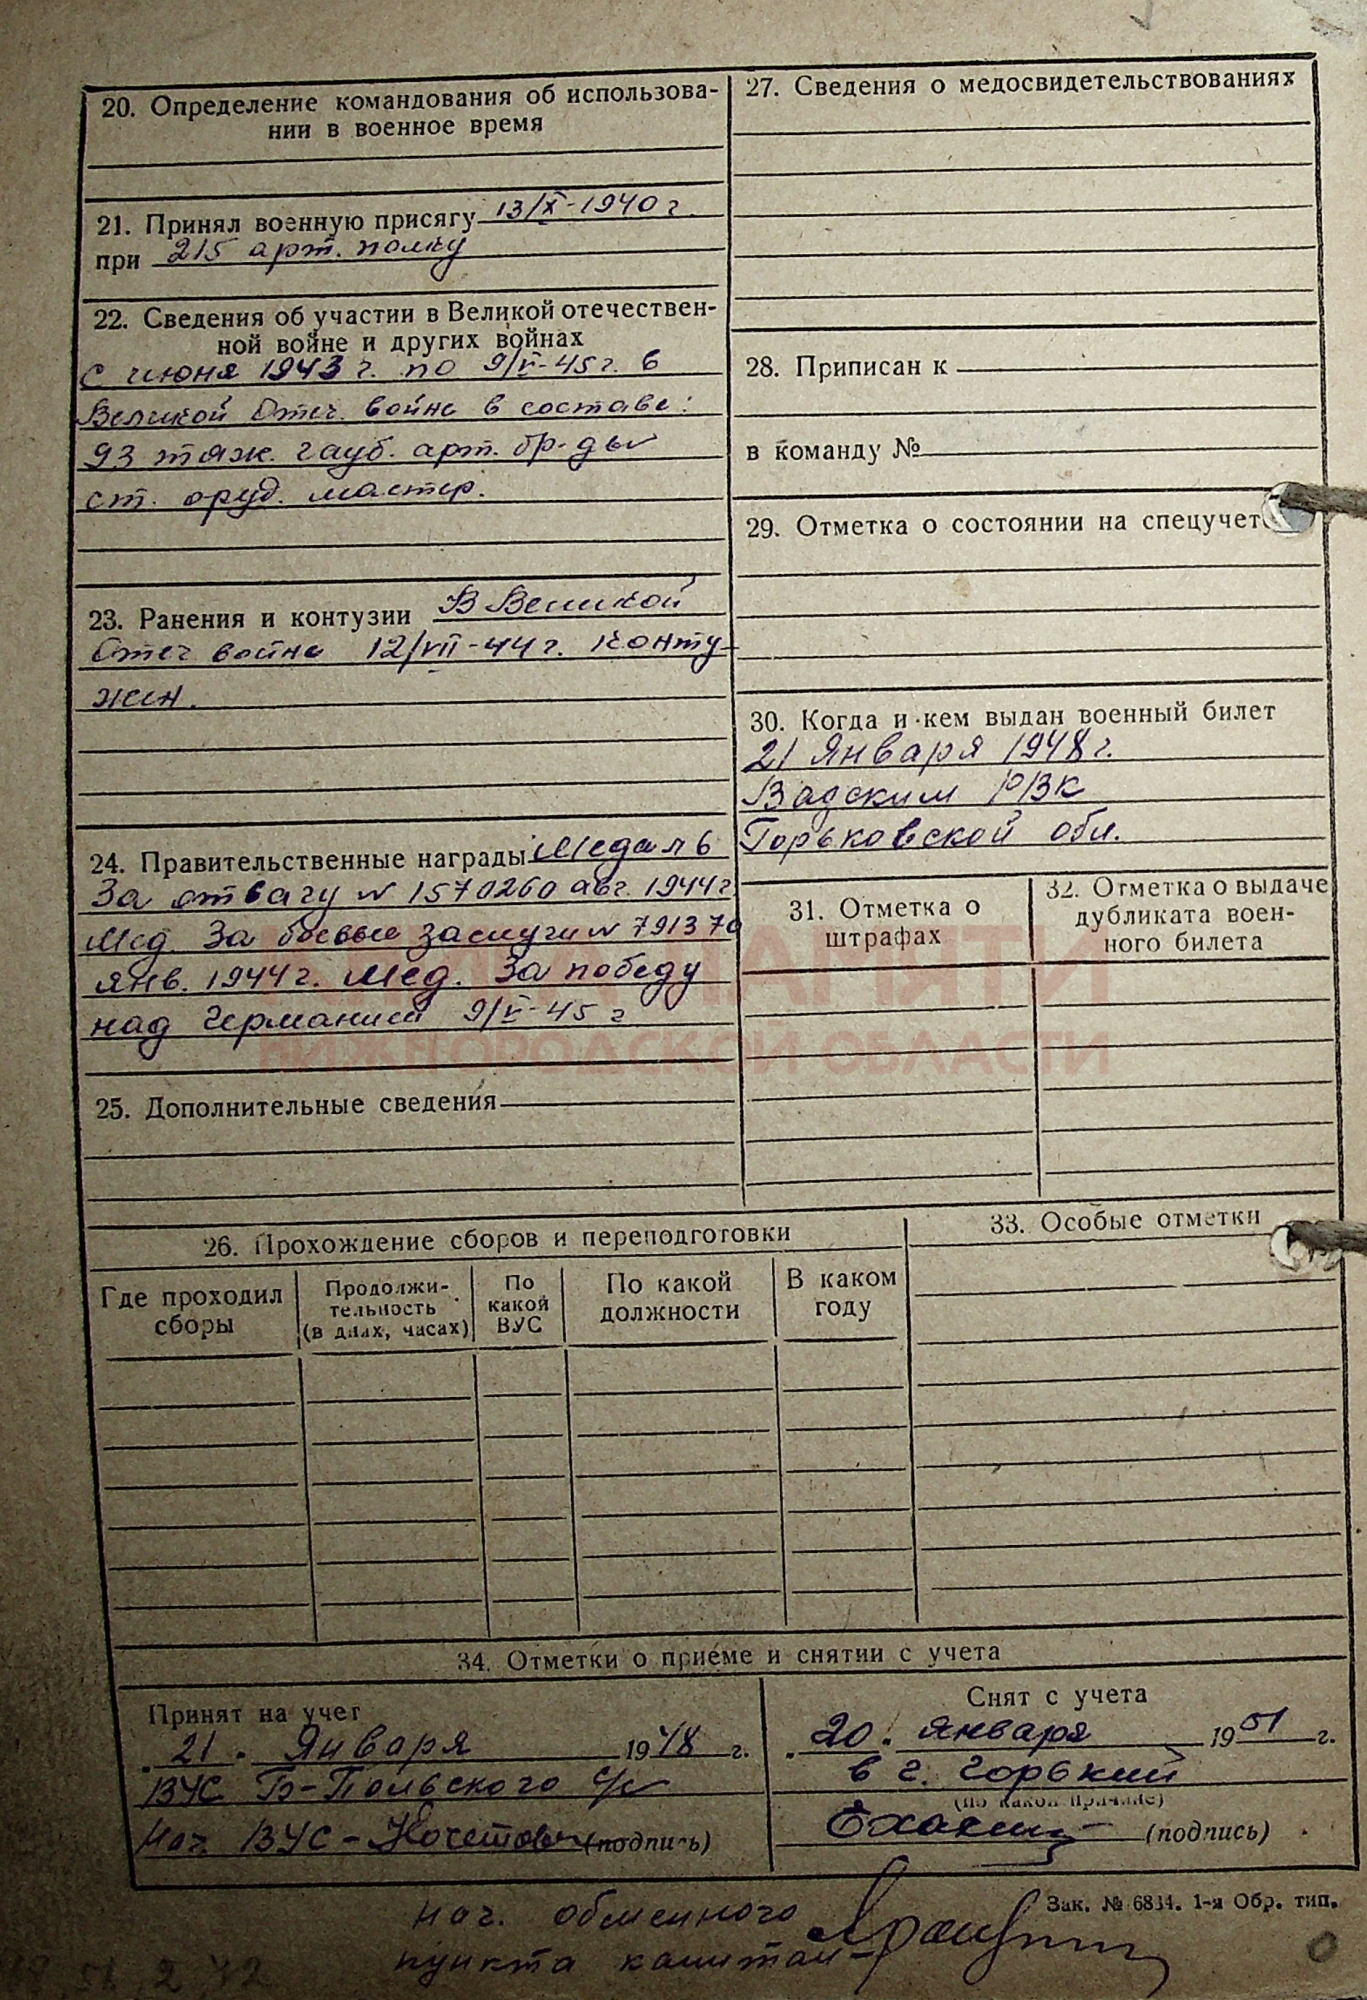 20. Определение командования об использова-
нии в военное время
21. Принял военную присягу 13/X-1940 г.
при 215 арт. полку
22. Сведения об участии в Великой отечествен-
ной войне и других войнах
с июня 1943 г. по 9/V-45 г. в
Великой Отеч. войне в составе:
93 тяж. гауб. арт. бр-ды
ст. оруд. мастер.
23. Ранения и контузии В Великой
Отеч войне 12/VII-44 г. конту-
жен.
24. Правительственные награды Медаль
За отвагу N 1570260 авг. 1944 г
Мед. За боевые заслуги N 791370
янв. 1944 г. Мед. За победу
над Германией 9/V-45 г
25. Дополнительные сведения
27. Сведения о медосвидетельствованиях
28. Приписан к
в команду №
29. Отметка о состоянии на спецучет
30. Когда и кем выдан военный билет
21 Января 1948 г.
Вадским РВК
Горьковской обл.
31. Отметка о
штрафах
32. Отметка о выдаче
дубликата воен-
ного билета
ПАМЯТИ
НИЖЕГОРОДСКОЙ ОБЛАСТИ
26. Прохождение сборов и переподготовки
Где проходил
сборы
Продолжи-
тельность
(в днях, часах)
По
какой
ВУС
По какой
должности
В каком
году
33. Особые отметки
34. Отметки о приеме и снятии с учета
Принят на учет
21 Января 1948 г.
ВУС Б-Польского с/с
Нач. ВУС - Кочетов (подпись)
Снят с учета
20 января 1951 г.
в г. Горький
(по какой причине)
(подпись)
Зак. № 6834. 1-я Обр. тип.
Нач. обменного
пункта капитан